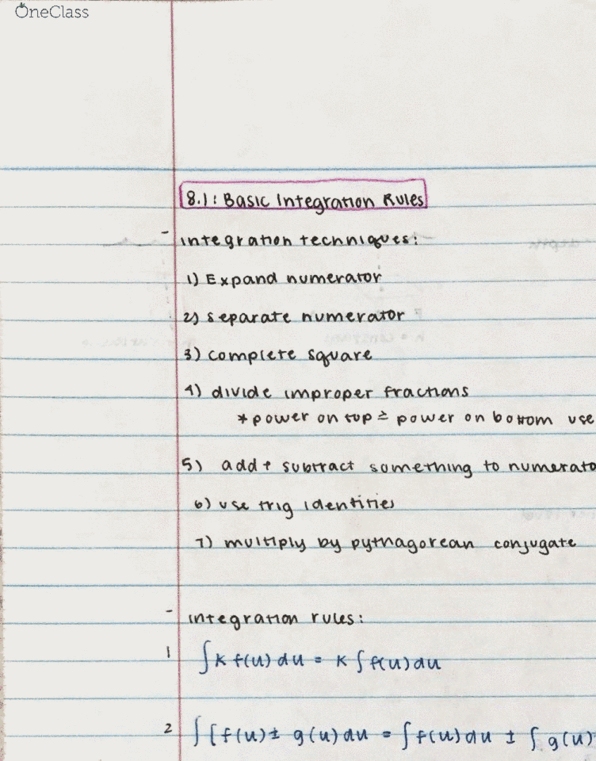 OneClass
8.1: Basic Integration Rules
- integration techniques:
1) Expand numerator
2) separate numerator
3) complete square
4) divide improper fractions
*power on top ≥ power on bottom use
5) add + subtract something to numerato
6) use trig identities
7) multiply by pythagorean conjugate
- integration rules:
1 ∫ k f(u) du = k ∫ f(u) du
2 ∫ [f(u) ± g(u) du = ∫ f(u) du ± ∫ g(u)